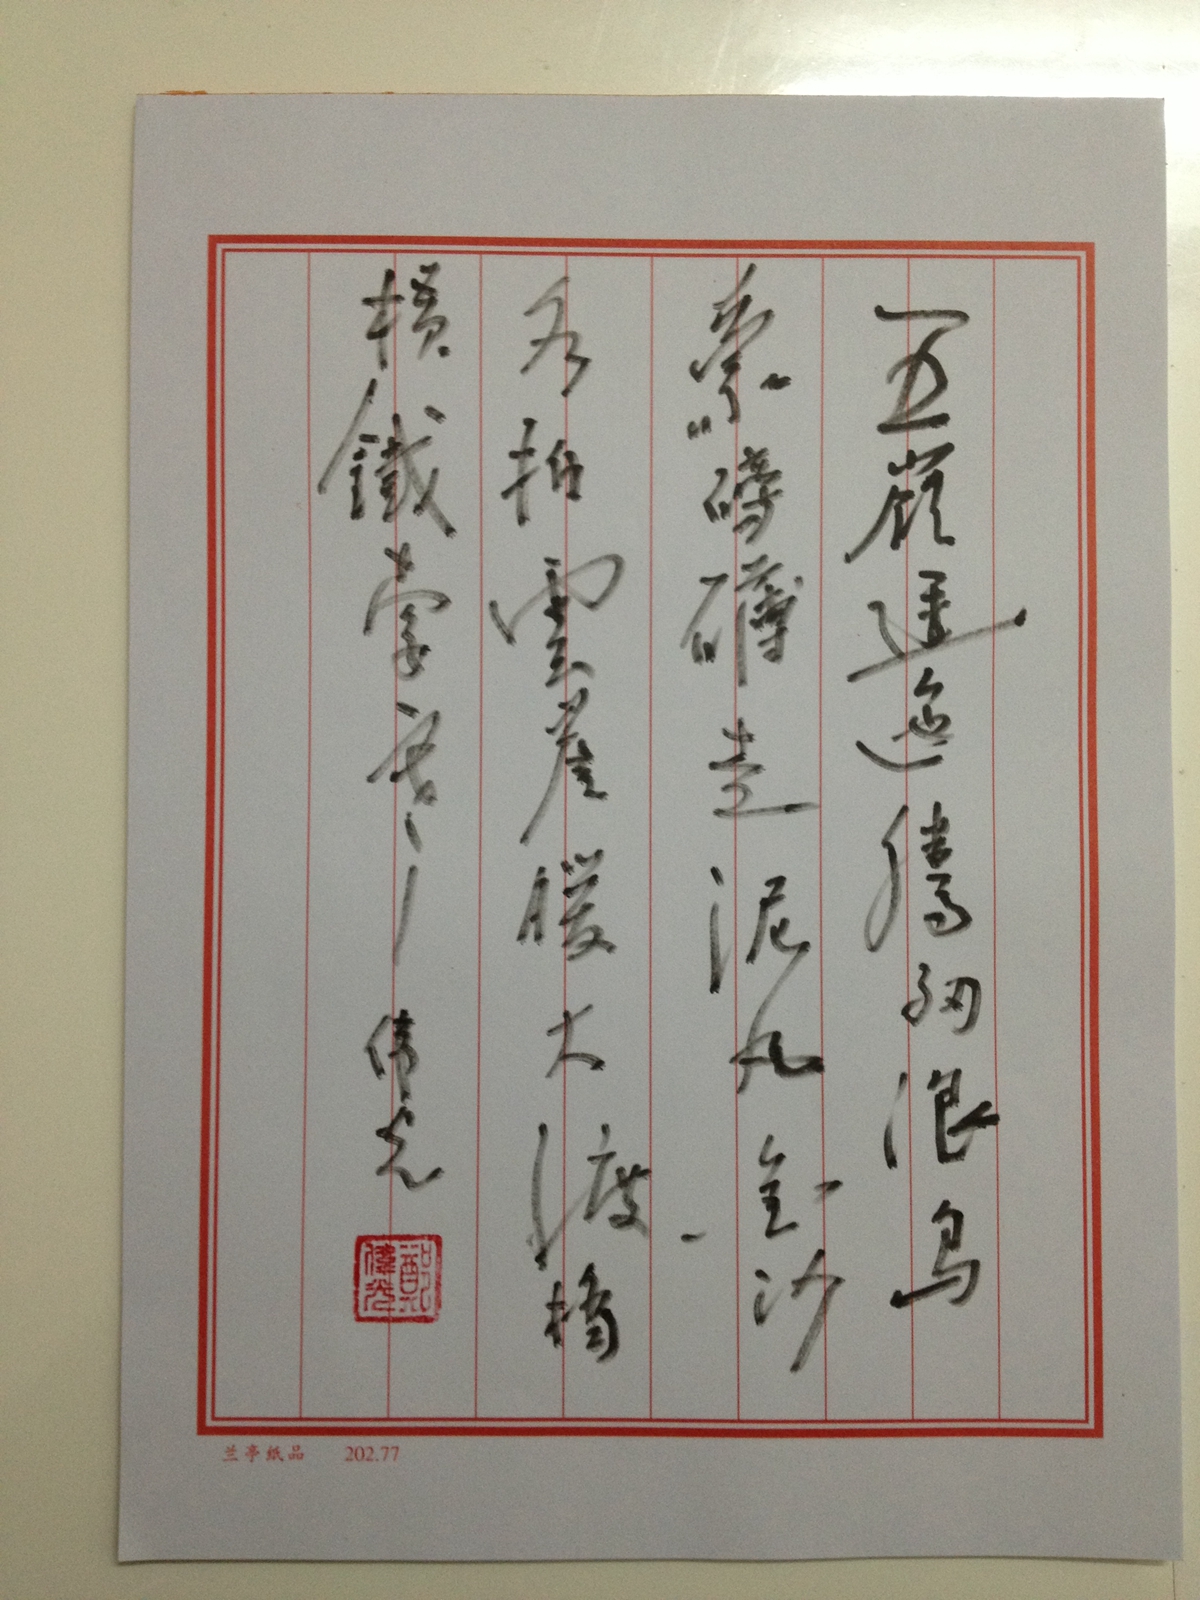 五嶺逶迤騰細浪烏
蒙磅礴走泥丸金沙
水拍雲崖暖大渡橋
橫鐵索寒 偉光
鄭偉光
兰亭纸品 202.77